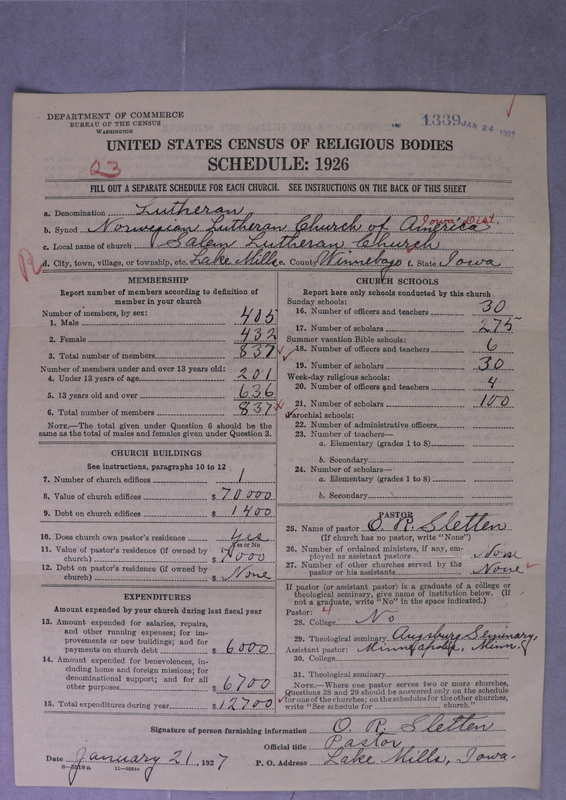 DEPARTMENT OF COMMERCE
BUREAU OF THE CENSUS
WASHINGTON
1339 JAN 24 1927
UNITED STATES CENSUS OF RELIGIOUS BODIES
SCHEDULE: 1926
23
FILL OUT A SEPARATE SCHEDULE FOR EACH CHURCH. SEE INSTRUCTIONS ON THE BACK OF THIS SHEET
a. Denomination Lutheran
b. Synod Norwegian Lutheran Church of America Iowa Dist.
c. Local name of church Salem Lutheran Church
R d. City, town, village, or township, etc. Lake Mills e. County Winnebago f. State Iowa
MEMBERSHIP
Report number of members according to definition of
member in your church
Number of members, by sex:
1. Male 405
2. Female 432
3. Total number of members 837
Number of members under and over 13 years old:
4. Under 13 years of age 201
5. 13 years old and over 636
6. Total number of members 837
NOTE.—The total given under Question 6 should be the
same as the total of males and females given under Question 3.
CHURCH BUILDINGS
See instructions, paragraphs 10 to 12
7. Number of church edifices 1
8. Value of church edifices $70000
9. Debt on church edifices $1400
10. Does church own pastor's residence Yes
Yes or No
11. Value of pastor's residence (if owned by
church) $7000
12. Debt on pastor's residence (if owned by
church) $None
EXPENDITURES
Amount expended by your church during last fiscal year
13. Amount expended for salaries, repairs,
and other running expenses; for im-
provements or new buildings; and for
payments on church debt $6000
14. Amount expended for benevolences, in-
cluding home and foreign missions; for
denominational support; and for all
other purposes $6700
15. Total expenditures during year $12700
CHURCH SCHOOLS
Report here only schools conducted by this church
Sunday schools:
16. Number of officers and teachers 30
17. Number of scholars 275
Summer vacation Bible schools:
18. Number of officers and teachers 6
19. Number of scholars 30
Week-day religious schools:
20. Number of officers and teachers 4
21. Number of scholars 100
Parochial schools:
22. Number of administrative officers
23. Number of teachers—
a. Elementary (grades 1 to 8)
b. Secondary
24. Number of scholars—
a. Elementary (grades 1 to 8)
b. Secondary
PASTOR
25. Name of pastor O. R. Sletten
(If church has no pastor, write "None")
26. Number of ordained ministers, if any, em-
ployed as assistant pastors None
27. Number of other churches served by the
pastor or his assistants None
If pastor (or assistant pastor) is a graduate of a college or
theological seminary, give name of institution below. (If
not a graduate, write "No" in the space indicated.)
Pastor: 4
28. College No
29. Theological seminary Augsburg Seminary,
Assistant pastor: Minneapolis, Minn.
30. College
31. Theological seminary
NOTE.—Where one pastor serves two or more churches,
Questions 28 and 29 should be answered only on the schedule
for one of the churches; on the schedules for the other churches,
write "See schedule for church."
Signature of person furnishing information O. R. Sletten
Official title Pastor
Date January 21, 1927 P. O. Address Lake Mills, Iowa.